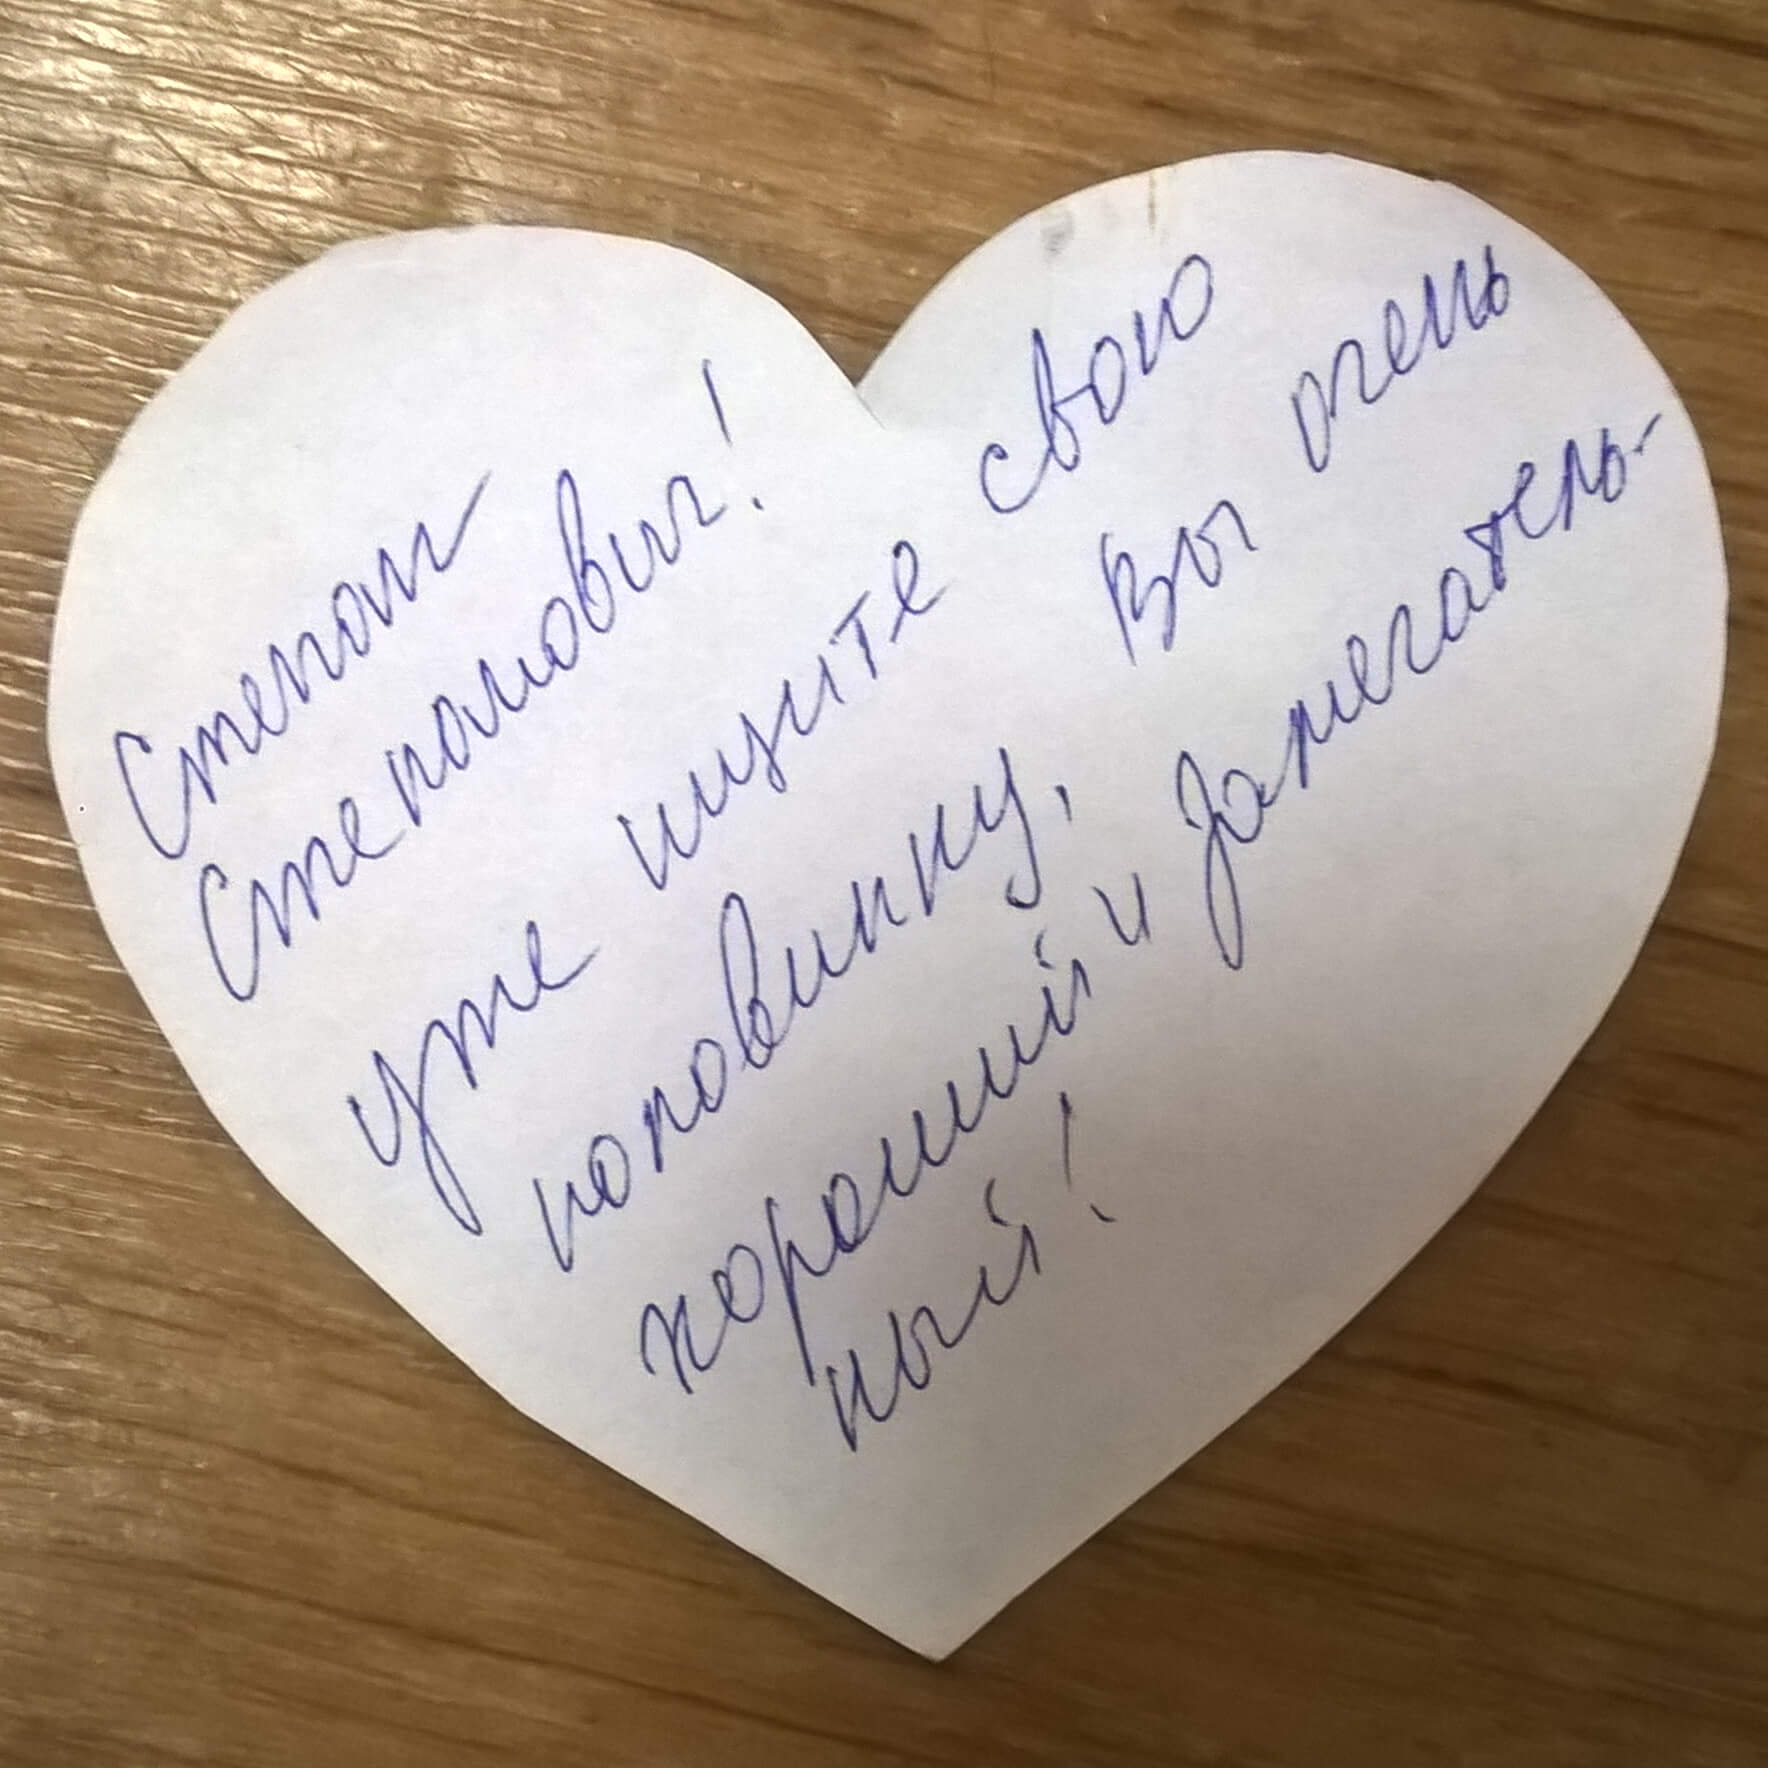 Степан
Степанович!
уже ищите свою
половинку, Вы очень
хороший и замечатель-
ный!